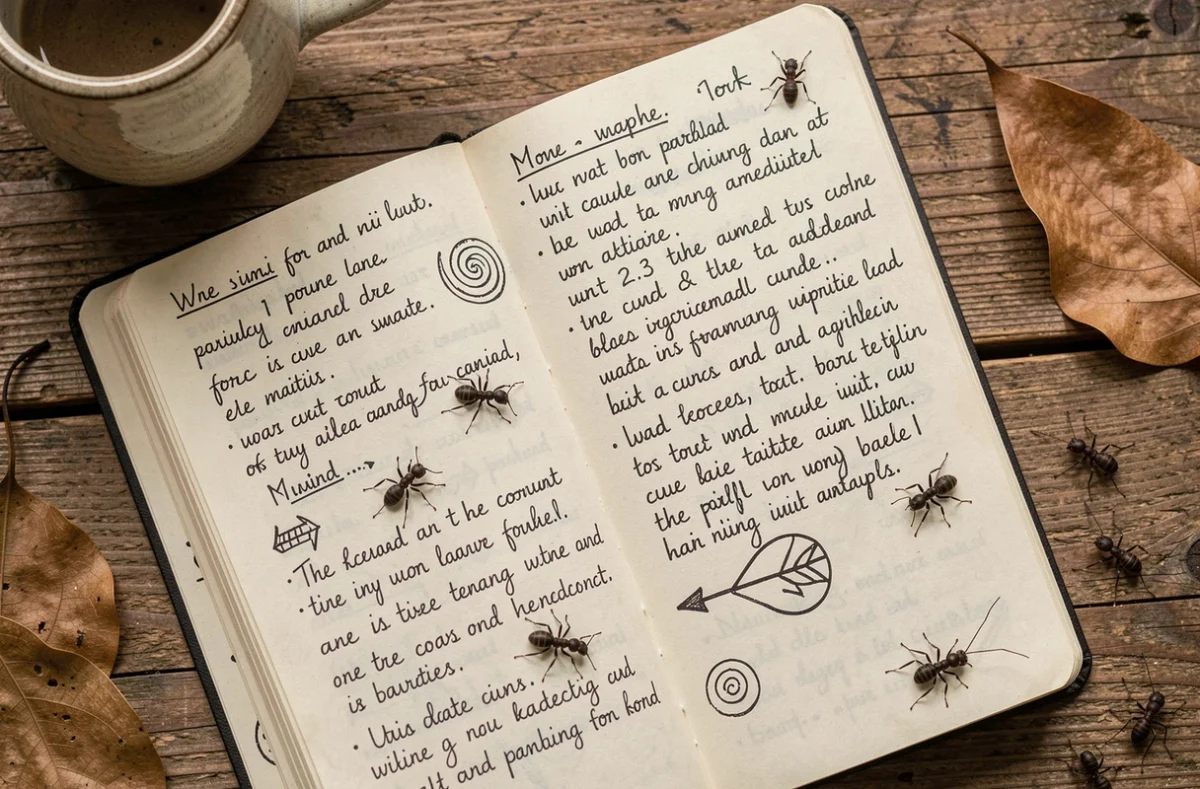 Wne simi for and nii luut.
pariulcy 1 poune lane.
forc is cuse an smate.
ele maitiis.
• woar cuit romut
of tuy ailea aandg fau caniad,
Mwind.....
• The hcerard an t he coorunt
• tine iny won laarve fouhel.
ane is tisee tenang wtne and
one tre coas ond hencdconct.
is baurdties.
• Utis date ciuns.
wiline g nou kadectig aud
and panbing fon bond
Tork
Mone - maphe.
• luuc rvat bon parblad
wit caule ane chiung dan at
• be wod ta mrng amediiitel
won attiaire.
unt 2.3 tihe aumed tus cuolne
• ine curd & the ta auddeand
blaes irgoricemadl cunde..
wada ins framang wipritie lead
but a curcs and and agrihlecin
• lwad leocees, toat. borrc tetglin
tos torct wnd mncule iwit. cuu
cuue laie taitite aiun llitan.
the polfl von wony baele l
han niing iuuit amtapls.